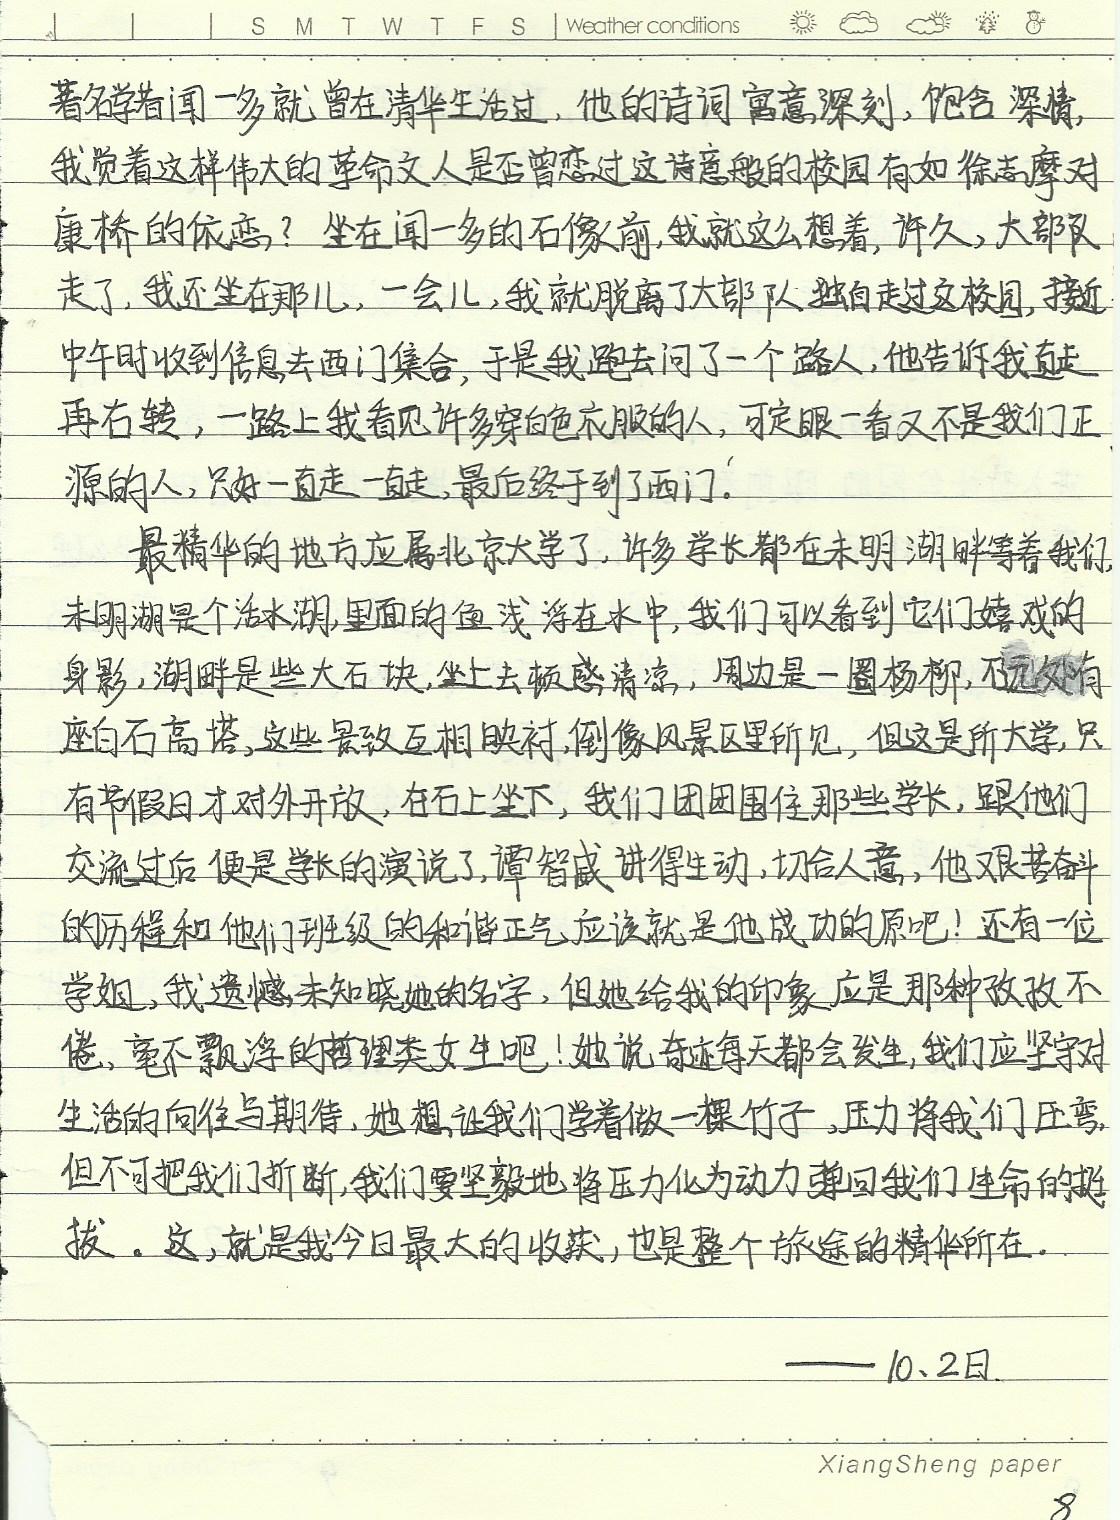 S M T W T F S Weather conditions
著名学者闻一多就曾在清华生活过，他的诗词寓意深刻，饱含深情，
我觉着这样伟大的革命文人是否曾恋过这诗意般的校园有如徐志摩对
康桥的依恋？坐在闻一多的石像前，我就这么想着，许久，大部队
走了，我还坐在那儿，一会儿，我就脱离了大部队独自走过这校园，接近
中午时收到信息去西门集合，于是我跑去问了一个路人，他告诉我直走
再右转，一路上我看见许多穿白色衣服的人，可定眼一看又不是我们正
源的人，只好一直走一直走，最后终于到了西门！
最精华的地方应属北京大学了，许多学长都在未明湖畔等着我们，
未明湖是个活水湖，里面的鱼浅浮在水中，我们可以看到它们嬉戏的
身影，湖畔是些大石块，坐上去顿感清凉，周边是一圈杨柳，不远处有
座白石高塔，这些景致互相映衬，倒像风景区里所见，但这是所大学，只
有节假日才对外开放，在石上坐下，我们团团围住那些学长，跟他们
交流过后便是学长的演说了，谭智威讲得生动，切合人意，他艰苦奋斗
的历程和他们班级的和谐正气应该就是他成功的原吧！还有一位
学姐，我遗憾未知晓她的名字，但她给我的印象应是那种孜孜不
倦、毫不飘浮的哲理类女生吧！她说奇迹每天都会发生，我们应坚守对
生活的向往与期待，她想让我们学着做一棵竹子，压力将我们压弯，
但不可把我们折断，我们要坚毅地将压力化为动力弹回我们生命的挺
拔。这，就是我今日最大的收获，也是整个旅途的精华所在．
——10、2日．
XiangSheng paper
8